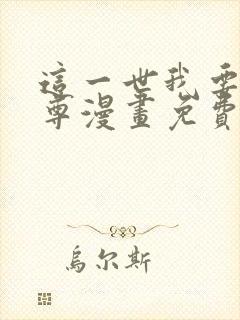 這一世我要
尊漫畫免費
烏尔斯